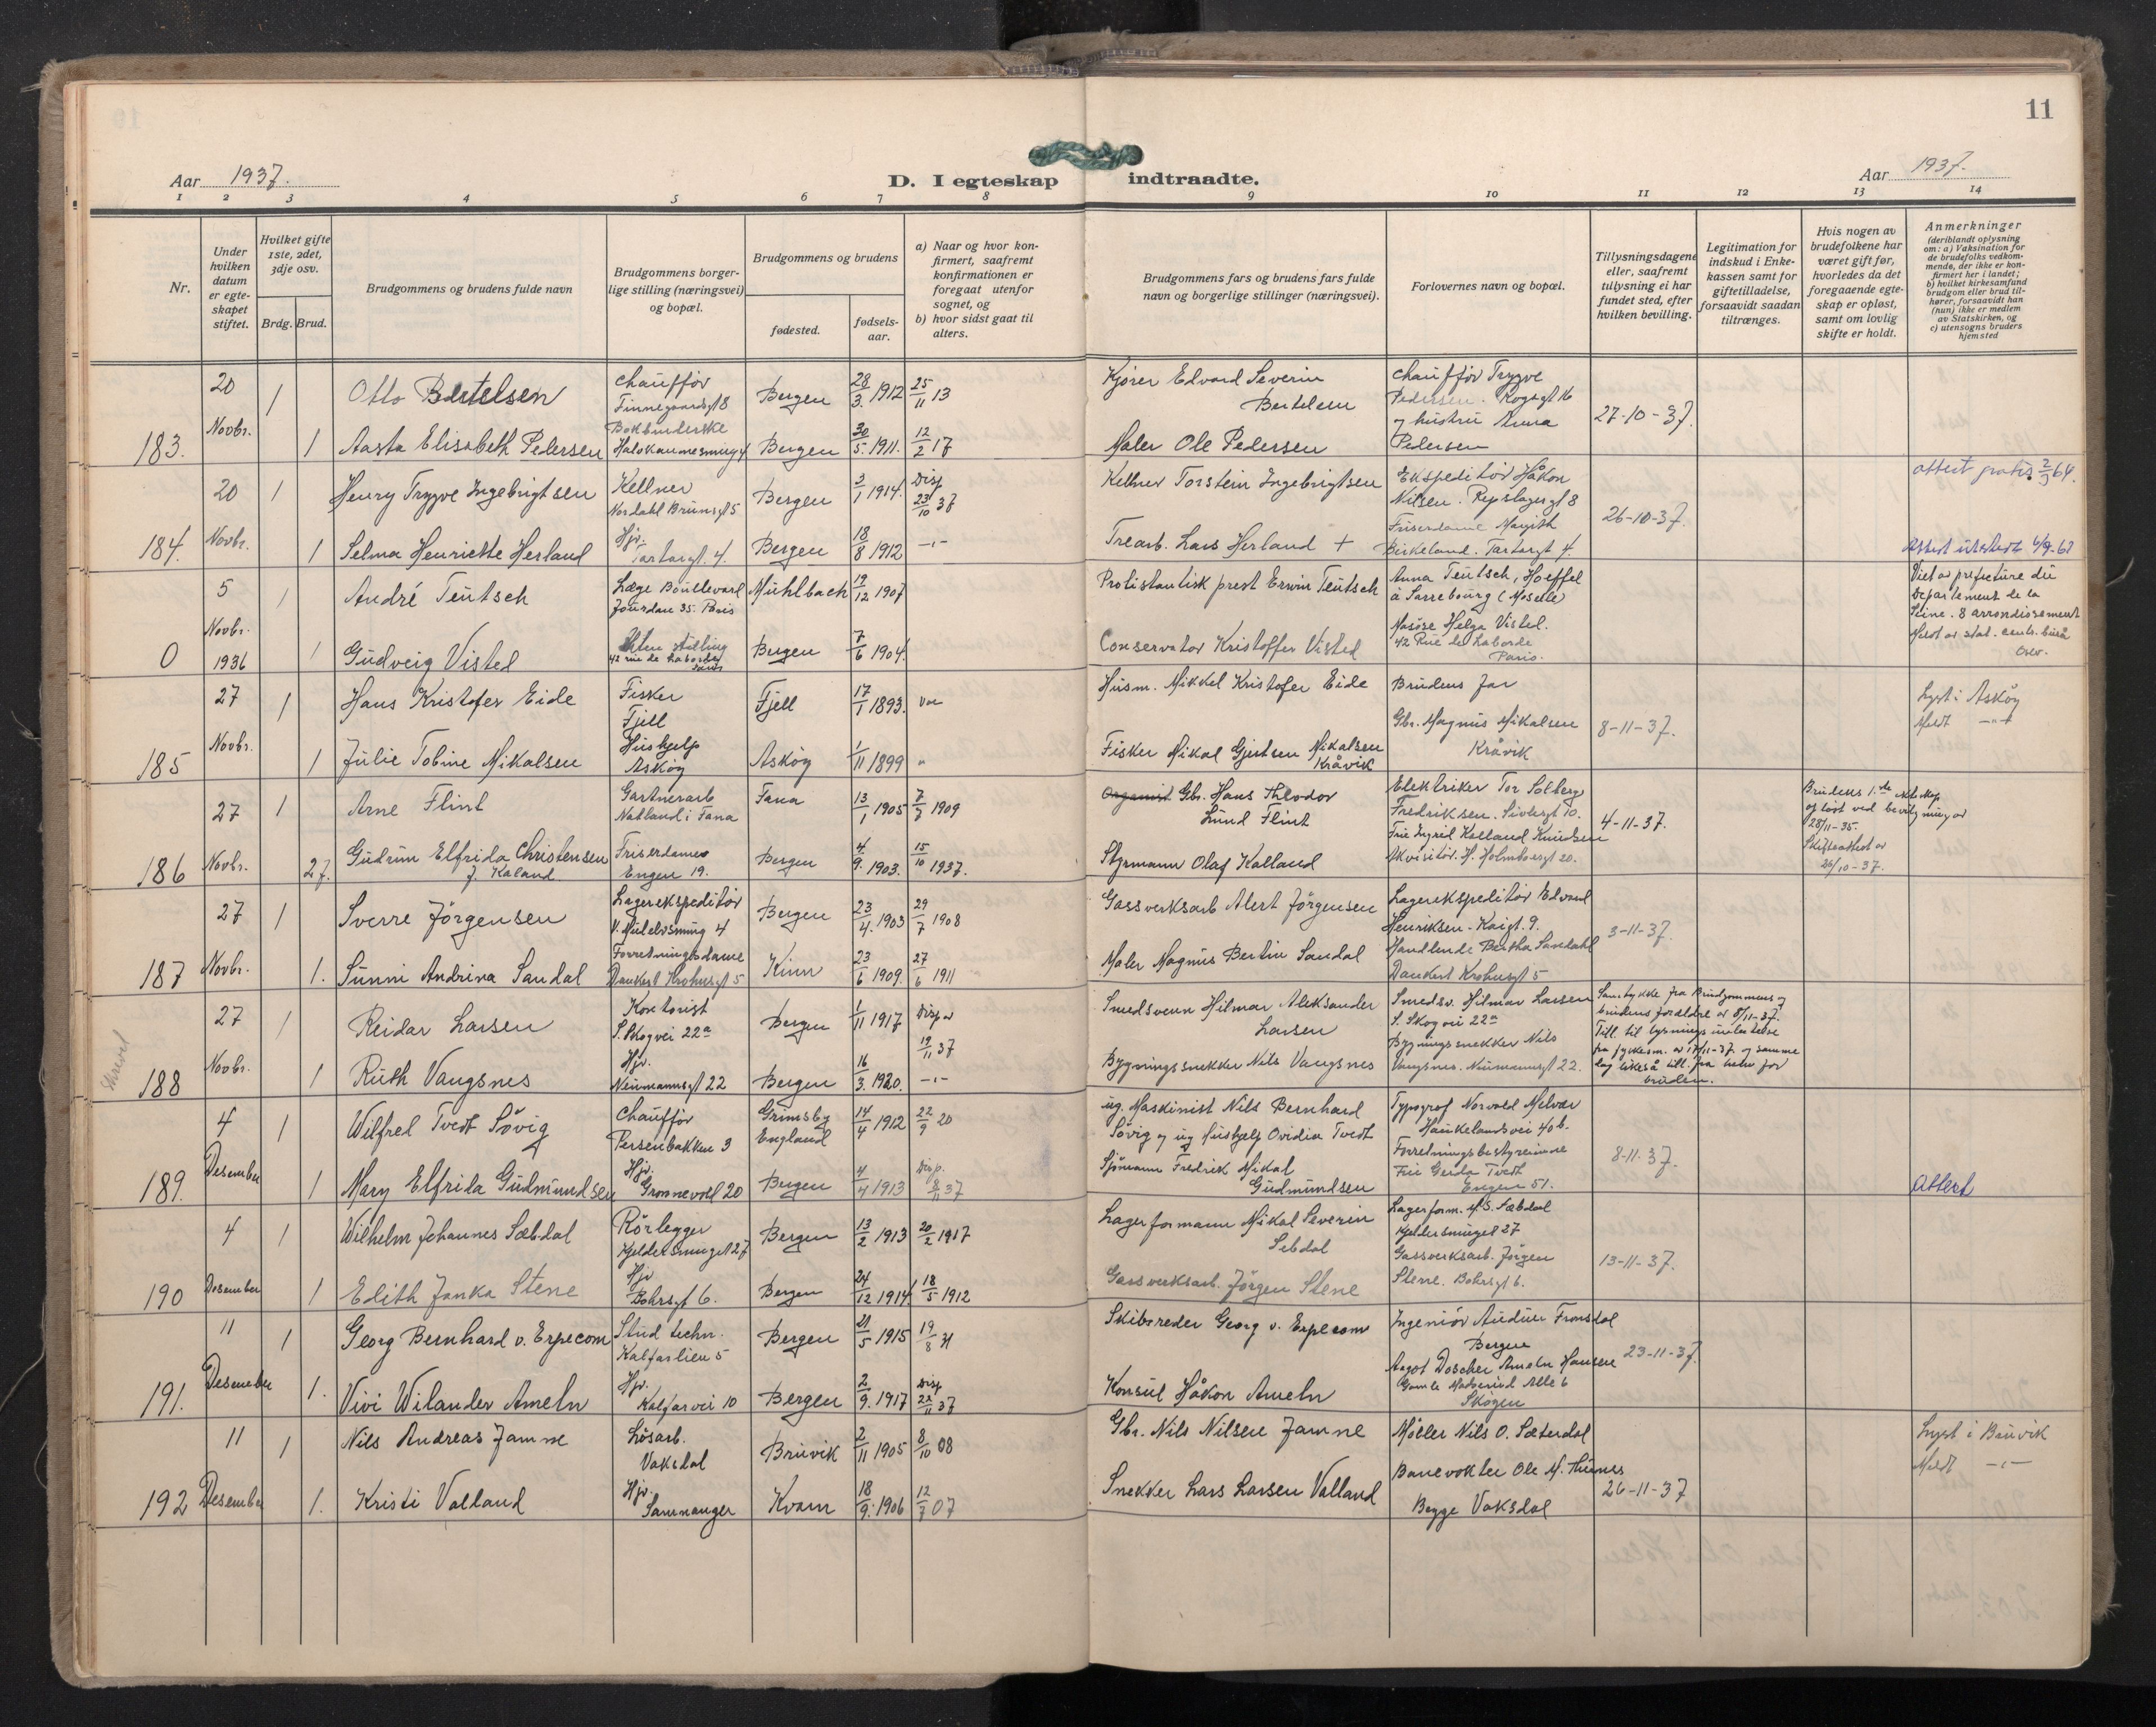 11
Aar 1937.
D. I egteskap indtraadte.
Aar 1937.
1 2 3 4 5 6 7 8 9 10 11 12 13 14
Nr.
Under hvilken datum er egteskapet stiftet.
Hvilket gifte 1ste, 2det, 3dje osv.
Brdg. Brud.
Brudgommens og brudens fulde navn
Brudgommens borgerlige stilling (næringsvei) og bopæl.
Brudgommens og brudens
fødested.
fødselsaar.
a) Naar og hvor konfirmert, saafremt konfirmationen er foregaat utenfor sognet, og
b) hvor sidst gaat til alters.
Brudgommens fars og brudens fars fulde navn og borgerlige stillinger (næringsvei).
Forlovernes navn og bopæl.
Tillysningsdagene eller, saafremt tillysning ei har fundet sted, efter hvilken bevilling.
Legitimation for indskud i Enkekassen samt for giftetilladelse, forsaavidt saadan tiltrænges.
Hvis nogen av brudefolkene har været gift før, hvorledes da det foregaaende egteskap er opløst, samt om lovlig skifte er holdt.
Anmerkninger
(deriblandt oplysning om: a) Vaksination for de brudefolks vedkommende, der ikke er konfirmert her i landet; b) hvilket kirkesamfund brudgom eller brud tilhører, forsaavidt han (hun) ikke er medlem av Statskirken, og c) utensogns bruders hjemsted
183. 20 Novbr. 1 Otto Bertelsen Chauffør Finnegaardsgt 8 Bergen 28/3. 1912 25/11 13 Kjører Edvard Severin Bertelsen Chauffør Trygve Pedersen. Rogagt 16 og hustru Anna Pedersen 27-10-37.
1 Aasta Elisabeth Pedersen Bokbinderske Bergen 30/5. 1911. 12/2 17 Maler Ole Pedersen
184. 20 Novbr. 1 Henry Trygve Ingebrigtsen Kellner Nordahl Brunsgt 5 Bergen 3/1 1914. Disp 23/10 37 Kellner Torstein Ingebrigtsen Ekspeditør Håkon Nilsen. Repslagergt 8 26-10-37.
1 Selma Henriette Herland Hjv. Tartargt. 4. Bergen 18/8 1912 -"- Trearb. Lars Herland + Friserdame Margith Birkeland. Tartargt 4. Attest utstedt
0 5 Novbr. 1936 1 André Teutsch Læge Boullevard Jourdan 35. Paris Mühlbach 19/12 1907 Protistantisk prest Erwin Teutsch Anna Teutsch, Hoeffel à Sarrebourg (Moselle) Viet av prefecture du Departement de la Seine. 8 arrondissement Meldt av stat. centr. burå Oslo.
1 Gudveig Visted Uten stilling 42 rue de Laborde Paris Bergen 7/6 1904. Conservator Kristoffer Visted Masøse Helga Visted. 42 Rue de Laborde Paris.
185 27 Novbr. 1 Hans Kristofer Eide Fisker Fjell Fjell 17/1 1893. Husm. Mikkel Kristofer Eide Brudens far 8-11-37. Lyst i Askøy Meldt -"-
1 Julie Tobine Mikalsen Hushjelp Askøy Askøy 1/11 1899 " Fisker Mikal Gjertsen Mikalsen Kråvik Gbr. Magnus Mikalsen Kråvik
186 27 Novbr. 1 Arne Flint Gartnerarb Natland i Fana Fana 13/1 1905 1909 Organist Gbr. Hans Theodor Lund Flint Elektriker Tor Solberg Fredriksen. Sivlegt 10. 4-11-37. Brudens 1ste ekteskap opløst ved bevilgning av 28/11-35. Skifteattest av 26/10-37.
2 Gudrun Elfrida Christensen f. Kaland Friserdame Engen 19. Bergen 4./9. 1903. 15/10 1937. Styrmann Olaf Kalland Fru Ingrid Kalland Knudsen Akvisitør. H. Holmboesgt 20.
187 27 Novbr. 1 Sverre Jörgensen Lagerekspeditör V. Mulelvsmug 4 Bergen 23/4. 1903 29/7 1908 Gassverksarb Alert Jörgensen Lagerekspeditör Edvard Henriksen. Kaigt. 9. 3-11-37.
1. Sunni Andrina Sandal Forretningsdame Dankert Krohnsgt 5 Kinn 23/6 1909. 27/6 1911 Maler Magnus Bertin Sandal Handlende Bertha Sandahl Dankert Krohnsgt 5
188 27 Novbr. 1 Reidar Larsen Kontorist S. Skogvei 22a Bergen 1/11 1917 Disp av 19/11 37 Smedsvenn Hilmar Aleksander Larsen Smedsv. Hilmar Larsen S. Skogvei 22a Samtykke fra Brudgommens og brudens foreldre av 8/11-37. Till. til lysnings unlatelse fra fylkesm. av 17/11-37. og samme dag likeså till. fra hene for bruden.
1 Ruth Vangsnes Hjv. Neumannsgt 22 Bergen 16/3. 1920. -"- Bygningssnekker Nils Vangsnes Bygningssnekker Nils Vangsnes. Neumannsgt 22.
189. 4 Desember 1 Wilfred Tvedt Sövig Chaufför Persenbakken 3 Grimsby England 14/4 1912 22/9 20 ug. Maskinist Nils Bernhard Sövig og ug Hushjelp Ovidia Tvedt Typograf Norvald Melvær Haukelandsvei 40b. 8-11-37.
1 Mary Elfrida Gudmundsen Hjv. Grönnevold 20 Bergen 4/4 1913 Disp. 8/11 37 Sjömann Fredrik Mikal Gudmundsen Forretningsbestyrerinne Fru Gerda Tvedt Engen 51. Attest
190 4 Desember 1 Wilhelm Johannes Sæbdal Rörlegger Kjeldersmuget 27 Bergen 13/2 1913 20/2 1917 Lagerformann Mikal Severin Sebdal Lagerform. M.S. Sæbdal Kjeldersmuget 27 13-11-37.
1 Edith Janka Stene Hjv Bohrsgt 6. Bergen 24/12 1914 18/5 1912 Gassverksarb. Jörgen Stene Gassverksarb. Jörgen Stene. Bohrsgt 6.
191. 11 Desember 1 Georg Bernhard v. Erpecom Stud techn. Kalfarlien 5 Bergen 21/5 1915 19/8 31 Skibsreder Georg v. Erpecom Ingeniör Audun Bergen 23-11-37.
1. Vivi Wilander Ameln Hjv. Kalfarvei 10 Bergen 2/9. 1917 Disp 22/11 37 Konsul Håkon Ameln Aagot Doscher Ameln Hansen Gamle Madserud Alle 6 Skøyen
192 11 Desember 1 Nils Andreas Jamne Lösarb. Vaksdal Bruvik 2/11 1905 8/10 08 Gbr. Nils Nilsen Jamne Möller Nils O. Sæterdal 26-11-37 Lyst i Bruvik Meldt -"-
1. Kristi Valland Hjv. Samnanger Kvam 18/9. 1906 12/7 07 Snekker Lars Larsen Valland Banevokter Ole M. Begge Vaksdal